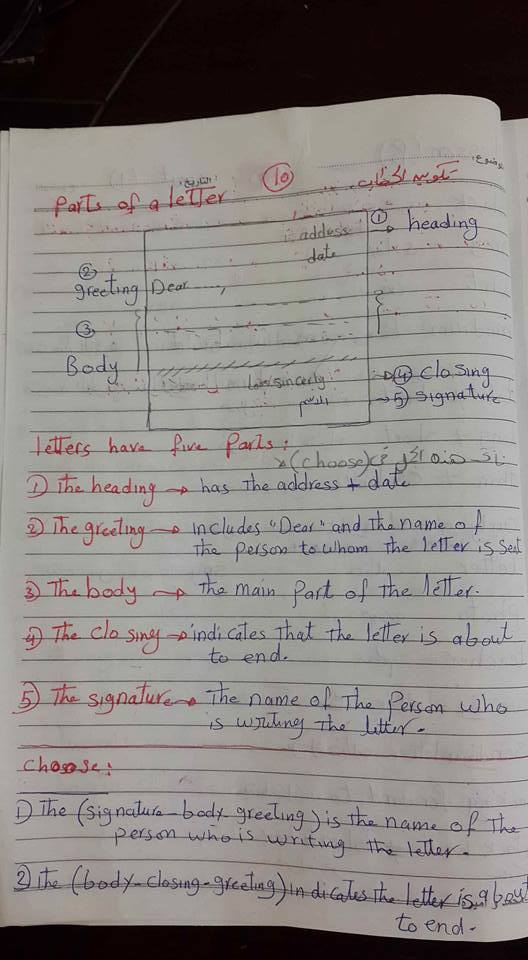 موضوع:
التاريخ:
تكوين الخطاب
10
Parts of a letter
address
① heading
date
②
greeting Dear ......,
③
Body
sincerly
④ closing
الاسم
5) signature
letters have five Parts:
(choose)
① The heading → has the address + date
② The greeting → includes "Dear" and the name of
the person to whom the letter is sent
③ The body → the main part of the letter.
④ The closing → indicates that the letter is about
to end.
⑤ The signature → The name of The Person who
is writing The letter.
Choose:
1) The (signature - body - greeting) is the name of The
person who is writing the letter.
2) The (body - closing - greeting) indicates the letter is about
to end.